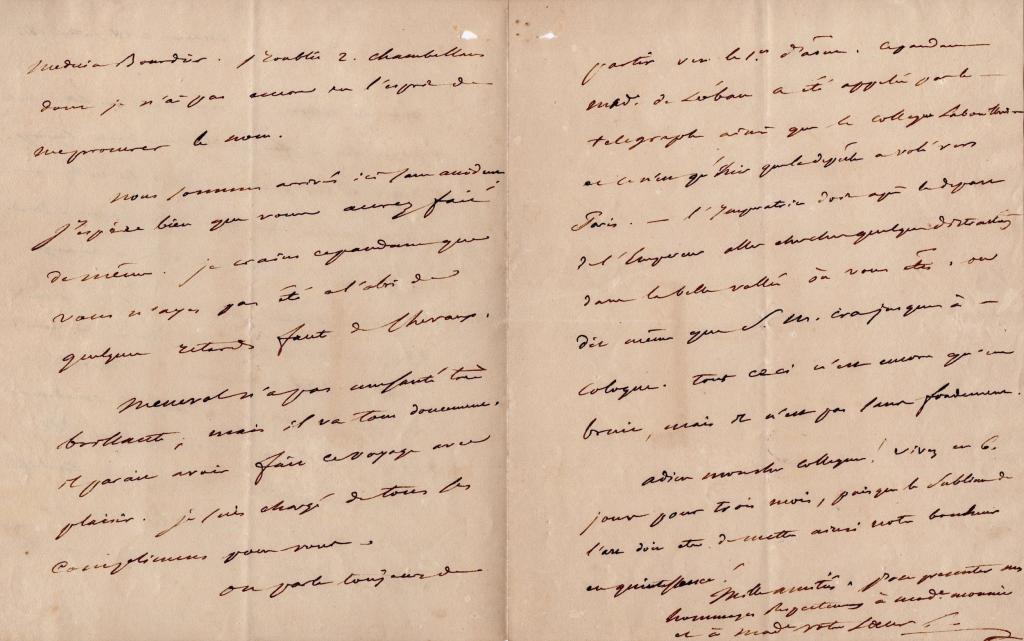 medecin Bourdier. j'oublie 2. chambellans
dont je n'ai pas encore eu l'esprit de
me procurer le nom.
nous sommes arrivés ici sans accidens
j'espère bien que vous aurez fait
de même. je crains cependant que
vous n'ayez pas été a l'abri de
quelques retards faute de chevaux.
Meneval n'a pas une santé très
brillante, mais il va tout doucement.
il parait avoir fait ce voyage avec
plaisir. je suis chargé de tous ses
complimens pour vous.
on parle toujours de
partir vers le 1er d'. cependant
mad. de Lobau a été appelée par le
telegraphe ainsi que le collegue
et ce n'est qu'hier que la depêche a volé vers
Paris. — l'Imperatrice doit après le depart
de l'Empereur aller chercher quelques distractions
dans la belle vallée où vous êtes. on
dit même que S. M. ira jusques à
Cologne. tout ceci n'est encore qu'un
bruit, mais il n'est pas sans fondement.
adieu mon cher collegue! vivez en 6.
jours pour trois mois, puisque le sublime de
l'art doit etre de mettre ainsi votre bonheur
en quintessence!
Mille amitiés. pour presenter mes
hommages respectueux à made
et à made votre soeur